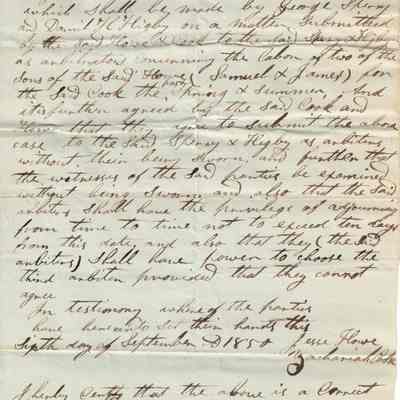 which shall be made by George Spery
and Daniel Higby on a matter submitted
by the said Howe & Cook to the said Spery & Higby
as arbitrators concerning the labour of two of the
sons of the said Howe (Samuel & James) for
the said Cook the Spring & Summer, And
it is further agreed by the said Cook and
Howe that they agree to submit the above
case to the said Spery & Higby as arbitors
without their being Sworn, and further that
the witnesses of the said parties be examined
without being Sworn and also that the said
arbitors shall have the priveledge of adjourning
from time to time not to exceed ten days
from this date, and also that they (the said
arbitors) Shall have power to choose the
third arbitor provided that they cannot
agree
In testimony whereof the parties
have hereunto Set their hands this
Sixth day of September D 1850 Jesse Howe
Zachariah Cook
I hereby Certify that the above is a Correct